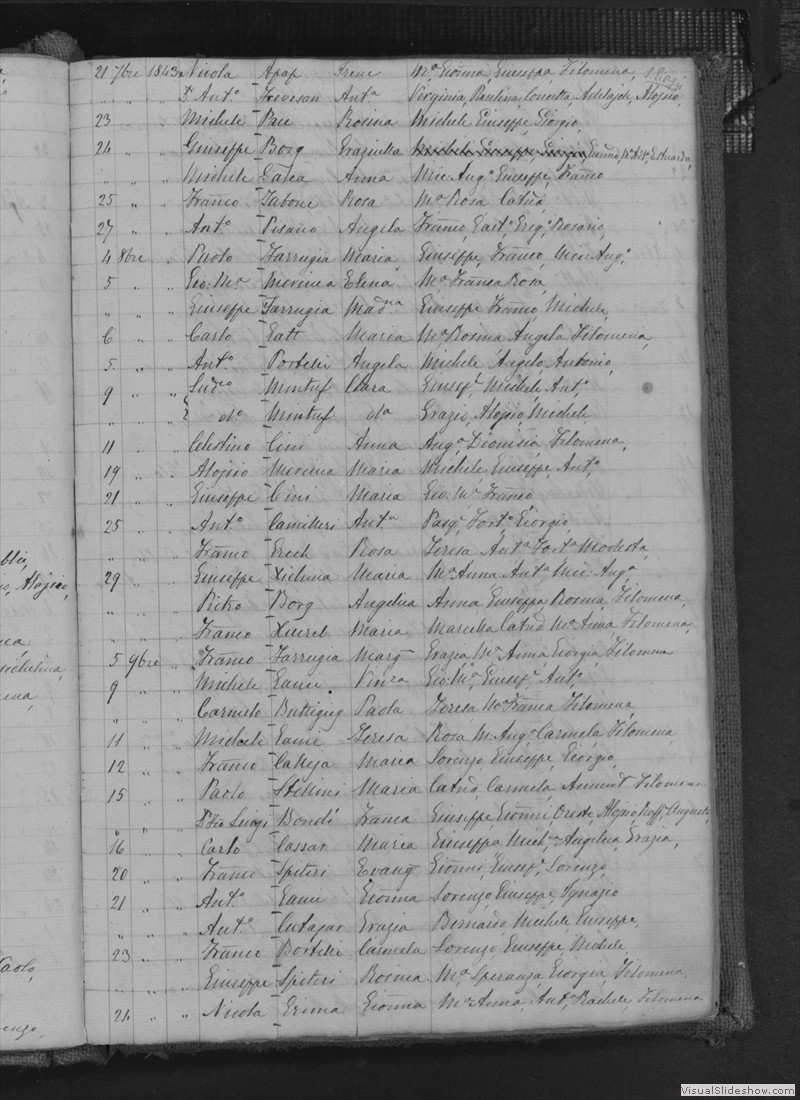 21 7bre 1843 Nicola Apap Irene Ma Gioñna, Giuseppa, Filomena,
" " " Dr Anto Trevisan Anta Virginia, Paulina, Concetta, Adelajde, Alojsio,
23 " " Michele Pace Rosina Michele Giuseppe Giorgio,
24 " " Giuseppe Borg Graziulla
" " " Michele Gatea Anna Mic: Ango Giuseppe, Franco
25 " " Franco Zabone Rosa Ma Rosa Catña
27 " " Anto Pisano Angela Franco, Gaeto, Rosario,
4 8bre " Paolo Farrugia Maria Giuseppe, Franco, Mic: Ango
5 " " Gio: Ma Mercieca Elena Ma Franca Rosa,
" " " Giuseppe Farrugia Madna Giuseppe Franco, Michele,
6 " " Carlo Gatt Maria Ma Rosina Angela Filomena,
5 " " Anto Portelli Angela Michele Angelo, Antonio,
9 " " Ludco Montuf Clara Giusepe, Michele, Anto,
" " " do Montuf da Grazio, Alojsio, Michele,
11 " " Celestino Cini Anna Anga Dionisia, Filomena,
19 " " Alojsio Mercieca Maria Michele, Giuseppe, Anto,
21 " " Giuseppe Cini Maria Gio: Ma Franco
25 " " Anto Camilleri Anta Pasqe Forto Giorgio,
" " " Franco Grech Rosa Teresa Anta Forta Modesta,
29 " " Giuseppe Xicluna Maria Ma Anna Anta Mic: Anga
" " " Pietro Borg Angelica Anna, Giuseppa, Rosina, Filomena,
" " " Franco Xuereb Maria Marcella Catña Ma Anna, Filomena,
5 9bre " Franco Farrugia Marg Grazia Ma Anna Giorgia, Filomena
9 " " Michele Gauci Vinza Gio: Ma, Giusepe, Anto,
" " " Carmelo Buttigieg Paola Teresa, Ma Franca Filomena,
11 " " Michele Gauci Teresa Rosa M. Anga Carmela Filomena,
12 " " Franco Calleja Maria Lorenzo Giuseppe, Giorgio,
15 " " Paolo Stellini Maria Catña Carmela, Annunt Filomena
" " " Dr Fro Luigi Bondi Franca Giuseppe, Gionni Oreste, Alojsio, Raffe, Augusto,
16 " " Carlo Cassar Maria Giuseppa Angelica Grazia,
20 " " Franco Spiteri Evang Gionni, Giusepe, Lorenzo
21 " " Anto Gauci Gioñna Lorenzo, Giuseppe, Ignazio
" " " Anto Cutajar Grazia Bernardo Michele, Giuseppe,
23 " " Franco Portelli Carmela Lorenzo, Giuseppe, Michele
" " " Giuseppe Spiteri Rosina Ma Speranza, Giorgia, Filomena,
24 " " Nicola Grima Gioñna Ma Anna, Anta, Rachele, Filomena
Alojsio,
Paolo,
VisualSlideshow.com